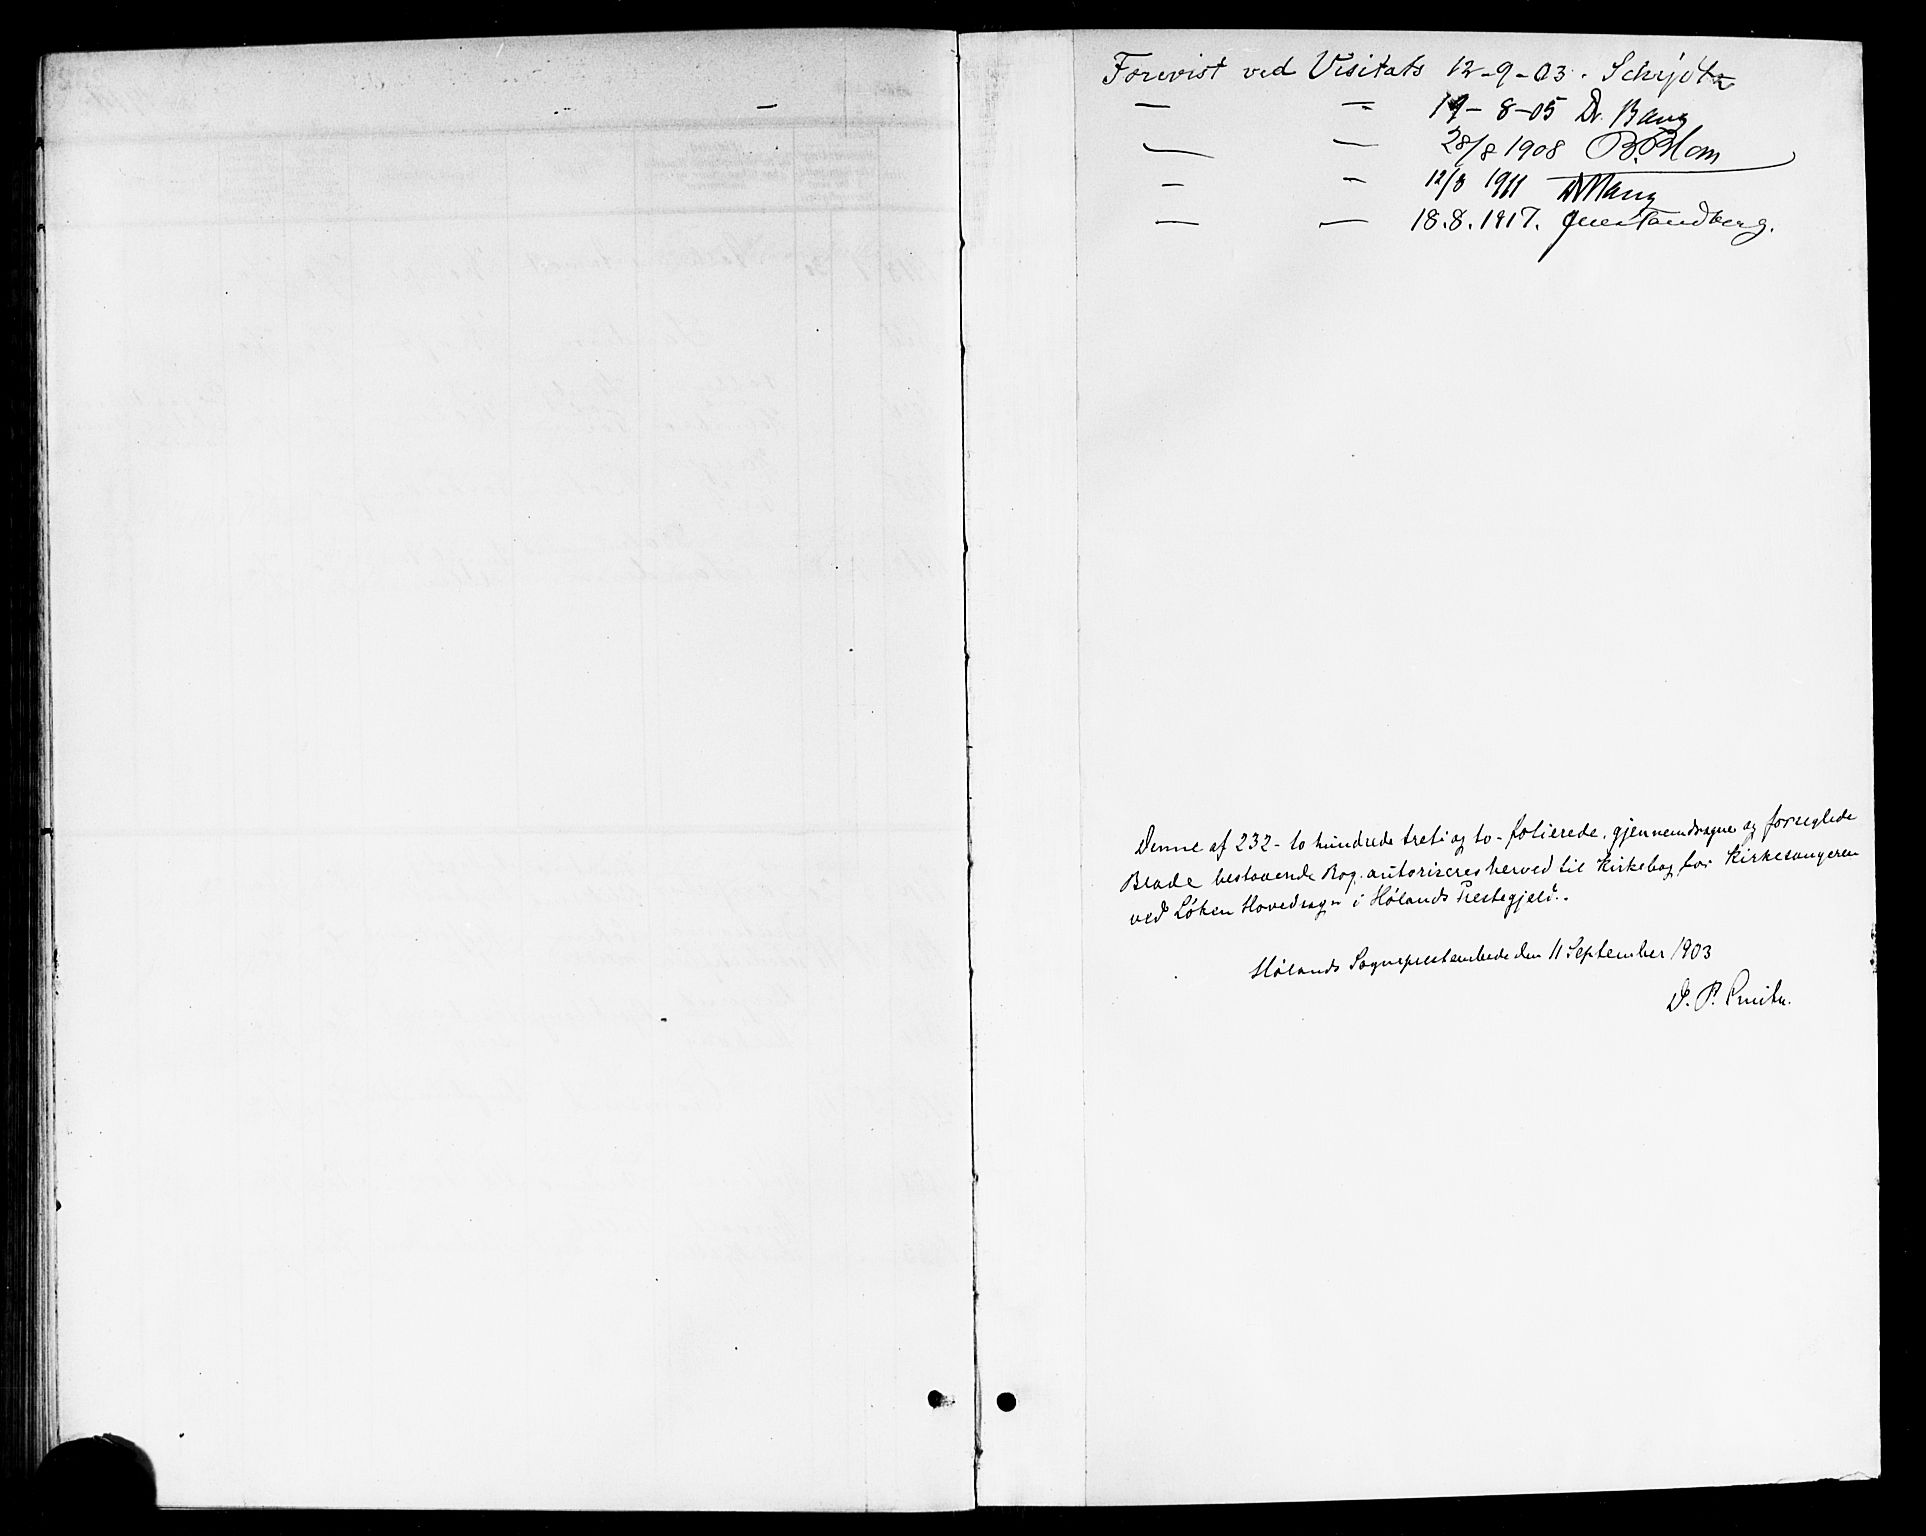 Forevist ved Visitats 12-9-03. Schjøtz
— — 19-8-05 Dr. Bang
— — 28/8 1908 B. Blom
— — 12/8 1911
— — 18.8.1917. Jens Tandberg.
Denne af 232 - to hundrede treti og to - folierede, gjennemdragne og forseglede
Blade bestaaende Bog autoriseres herved til Kirkebog for Kirkesangeren
ved Løken Hovedsogn i Hølands Prestegjeld.
Hølands Sogneprestembede den 11 September 1903